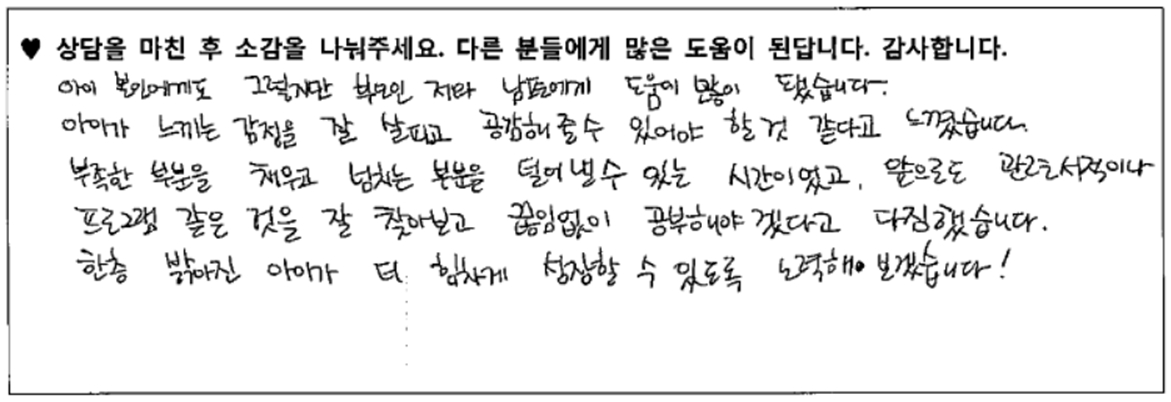 ♥ 상담을 마친 후 소감을 나눠주세요. 다른 분들에게 많은 도움이 된답니다. 감사합니다.
아이 본인에게도 그렇지만 부모인 저와 남편에게 도움이 많이 됐습니다.
아이가 느끼는 감정을 잘 살피고 공감해 줄 수 있어야 할 것 같다고 느꼈습니다.
부족한 부분을 채우고 넘치는 부분을 덜어 낼 수 있는 시간이었고, 앞으로도 관련 서적이나
프로그램 같은 것을 잘 찾아보고 끊임없이 공부해야 겠다고 다짐했습니다.
한층 밝아진 아이가 더 힘차게 성장할 수 있도록 노력해 보겠습니다!